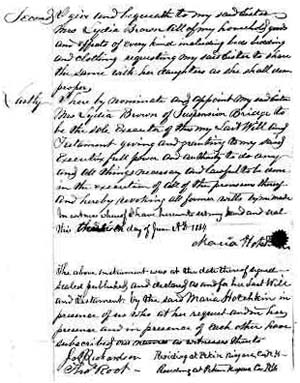 Second I give and bequeath to my said sister
Mrs Lydia Brown all of my household goods
and effects of every kind including beds bedding
and clothing requesting my said sister to share
the same with her daughters as she shall deem
proper
Lastly I hereby nominate and appoint my said sister
Mrs Lydia Brown of Suspension Bridge to
be the sole Executor of this my Last Will and
Testament giving and granting to my said
Executrix full power and authority to do any
and all things necessary and lawful to be done
in the execution of all of the premises thereof
And hereby revoking all former wills by me made
In witness whereof I have hereunto set my hand and seal
this day of June A.D. 1884
Maria Hotchkin
The above instrument was at the date thereof signed
sealed published and declared as and for the Last Will
and testament by the said Maria Hotchkin in
presence of us who at her request and in her
presence and in presence of each other have
subscribed our names as witnesses thereto
Richardson Residing at Pekin Niagara Co. N.Y.
Thos Root Residing at Pekin Niagara Co. N.Y.